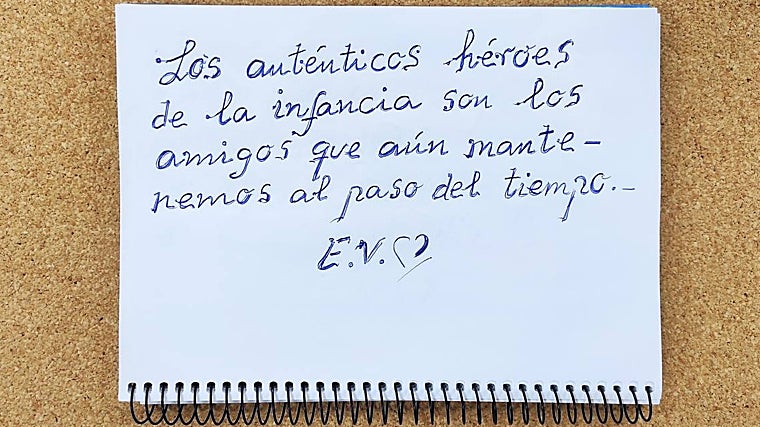 Los auténticos héroes
de la infancia son los
amigos que aún mante-
nemos al paso del tiempo.-
E.V.